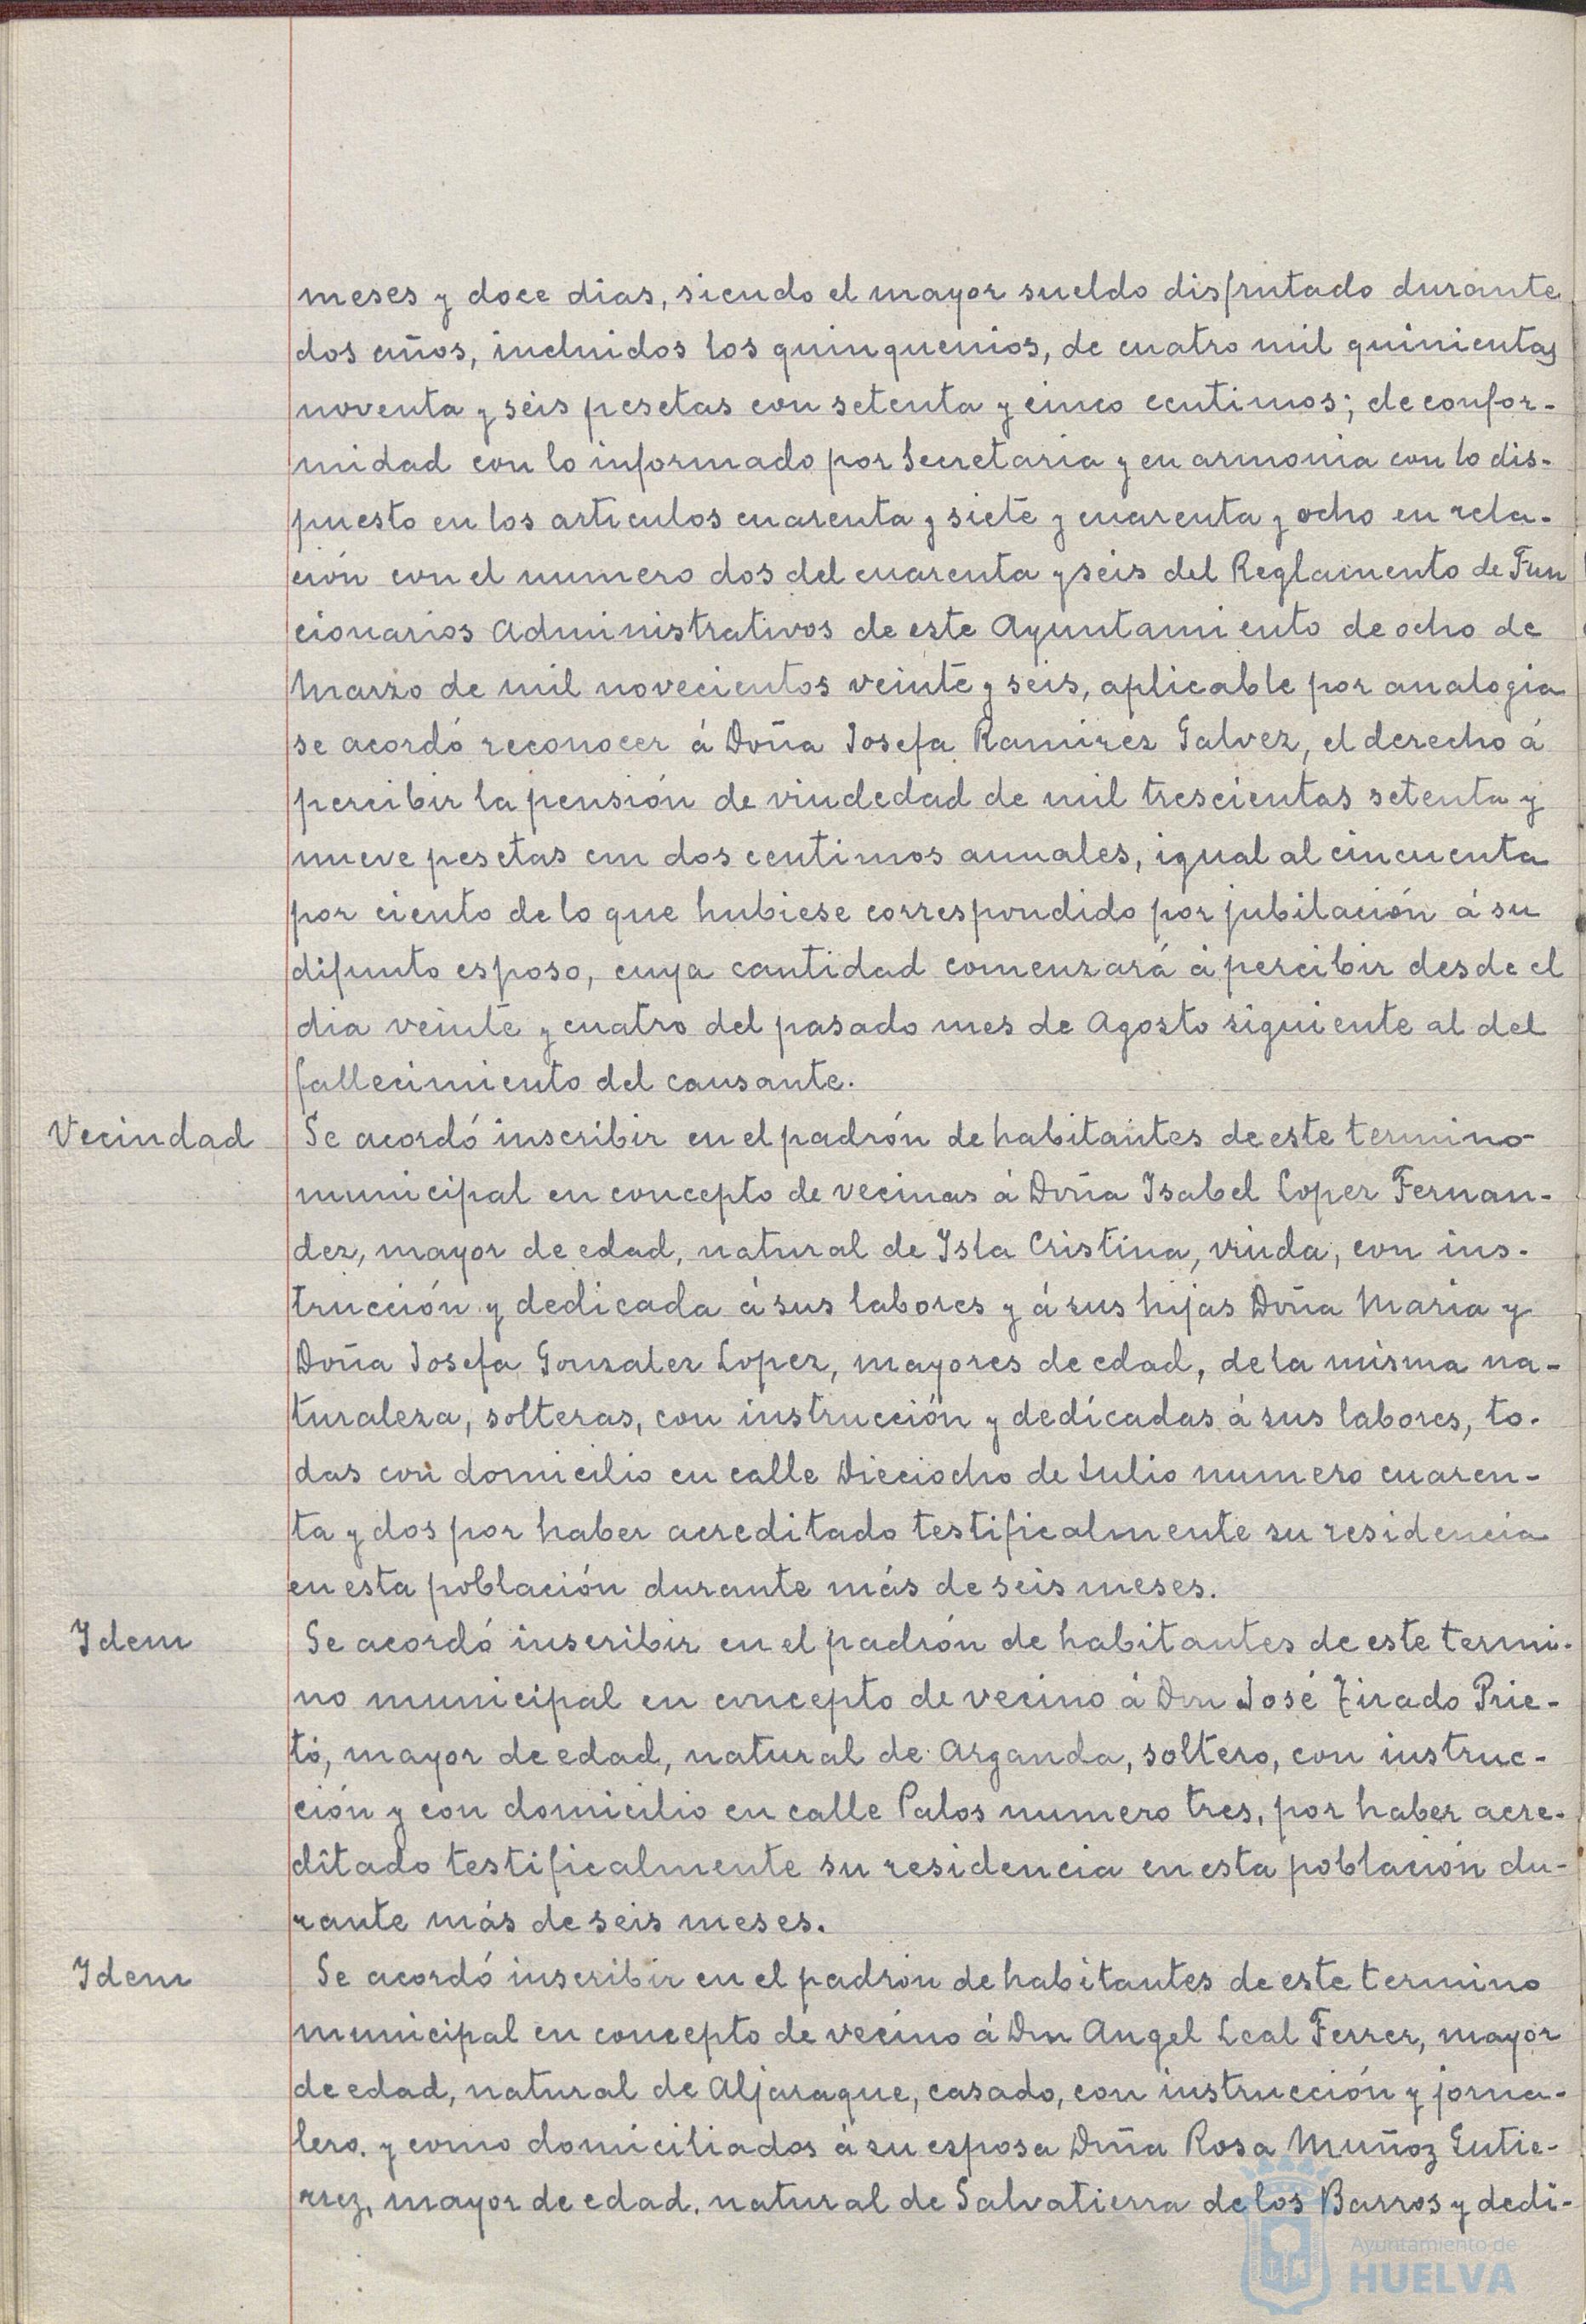 meses y doce dias, siendo el mayor sueldo disfrutado durante
dos años, incluidos los quinquenios, de cuatro mil quinientas
noventa y seis pesetas con setenta y cinco centimos; de confor-
midad con lo informado por Secretaria y en armonia con lo dis-
puesto en los articulos cuarenta y siete y cuarenta y ocho en rela-
ción con el numero dos del cuarenta y seis del Reglamento de Fun
cionarios Administrativos de este Ayuntamiento de ocho de
Marzo de mil novecientos veinte y seis, aplicable por analogia
se acordó reconocer á Doña Josefa Ramirez Galvez, el derecho á
percibir la pensión de viudedad de mil trescientas setenta y
nueve pesetas con dos centimos anuales, igual al cincuenta
por ciento de lo que hubiese correspondido por jubilación á su
difunto esposo, cuya cantidad comenzará á percibir desde el
dia veinte y cuatro del pasado mes de Agosto siguiente al del
fallecimiento del causante.
Vecindad Se acordó inscribir en el padrón de habitantes de este termino
municipal en concepto de vecinas á Doña Isabel Lopez Fernan-
dez, mayor de edad, natural de Isla Cristina, viuda, con ins-
trucción y dedicada á sus labores y á sus hijas Doña Maria y
Doña Josefa Gonzalez Lopez, mayores de edad, de la misma na-
turaleza, solteras, con instrucción y dedicadas á sus labores, to-
das con domicilio en calle Dieciocho de Julio numero cuaren-
ta y dos por haber acreditado testificalmente su residencia
en esta población durante más de seis meses.
Idem Se acordó inscribir en el padrón de habitantes de este termi-
no municipal en concepto de vecino á Don José Tirado Prie-
to, mayor de edad, natural de Arganda, soltero, con instruc-
ción y con domicilio en calle Palos numero tres, por haber acre-
ditado testificalmente su residencia en esta población du-
rante más de seis meses.
Idem Se acordó inscribir en el padron de habitantes de este termino
municipal en concepto de vecino á Don Angel Leal Ferrer, mayor
de edad, natural de Aljaraque, casado, con instrucción y jorna-
lero. y como domiciliados á su esposa Doña Rosa Muñoz Gutie-
rrez, mayor de edad, natural de Salvatierra de los Barros y dedi-
Ayuntamiento de
HUELVA